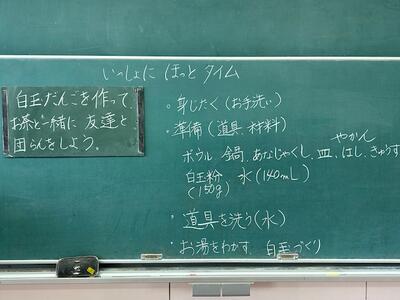 いっしょに ほっと タイム
白玉だんごを作って、
お茶と一緒に 友達と
団らんをしよう。
・身じたく(お手洗い)
・準備(道具、材料)
やかん
ボウル 鍋、あなじゃくし、皿、はし、きゅうす
白玉粉 水(140mL)
(150g)
・道具を洗う(水)
・お湯をわかす 白玉づくり